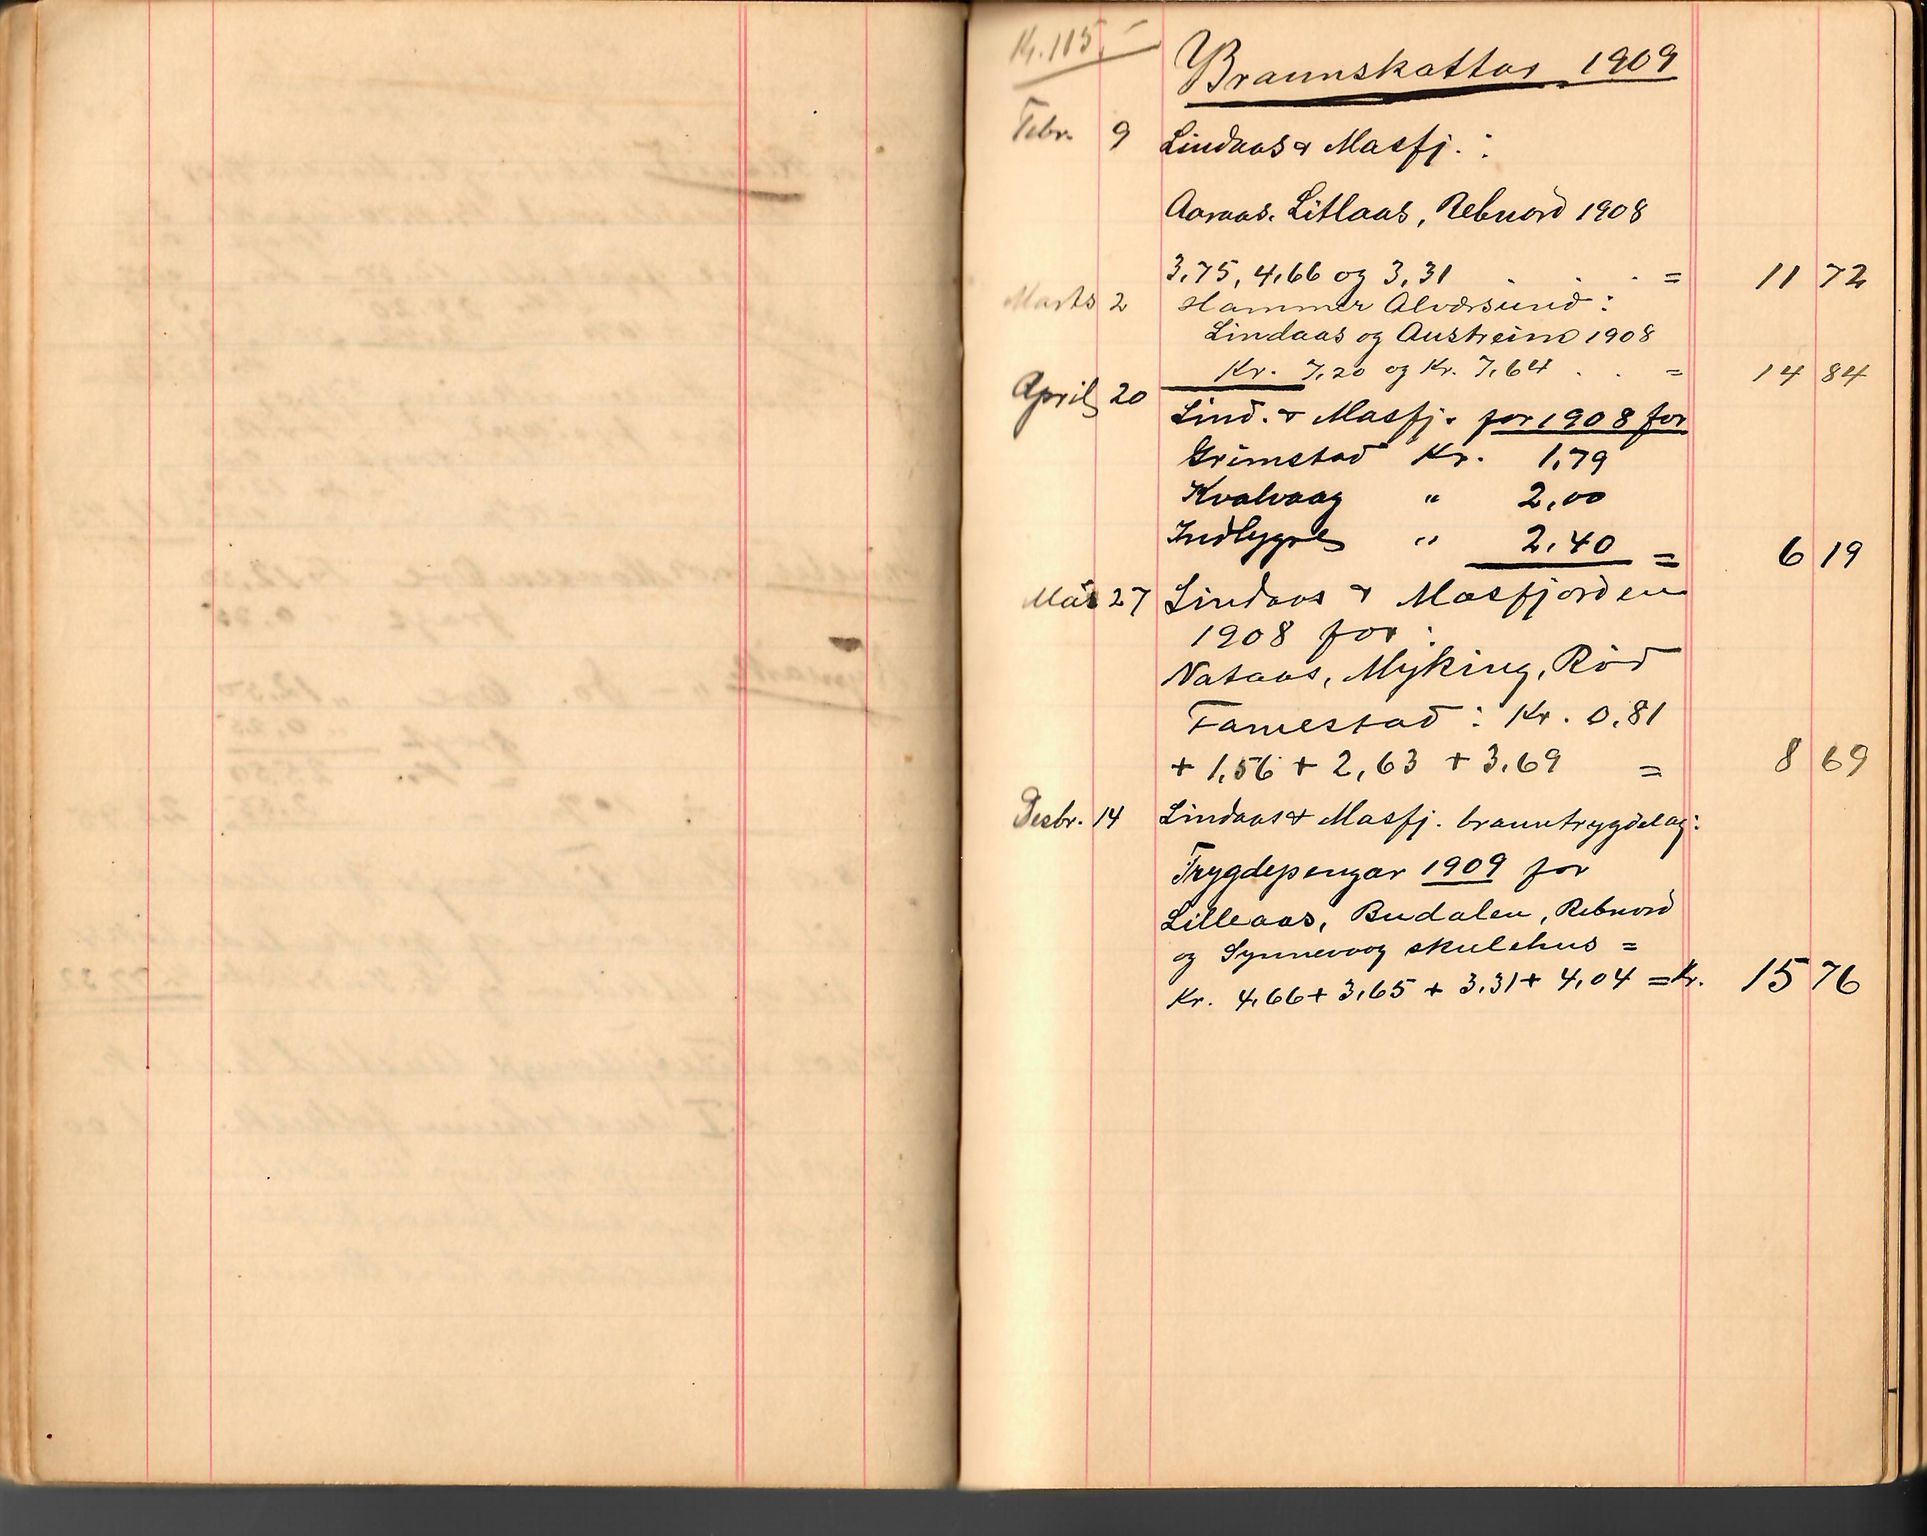 Kr. 115,-
Braunskattar 1909
Febr. 9 Lindaas & Masfj. :
Aaraas. Litlaas, Rebnord 1908
3,75, 4,66 og 3,31 . . . = 11 72
Marts 2 Hammer Alværsund :
Lindaas og Austreim 1908
Kr. 7,20 og Kr. 7,64 . . = 14 84
April 20 Lind. & Masfj. for 1908 for
Grimstad Kr. 1,79
Kvalvaag " 2,00
Indbygre " 2,40 = 6 19
Mai 27 Lindaas & Masfjorden
1908 for :
Nataas, Myking, Rød
Fanestad : Kr. 0,81
+ 1,56 + 2,63 + 3,69 = 8 69
Desbr. 14 Lindaas & Masfj. branntrygdelag:
Trygdepengar 1909 for
Lilleaas, Budalen, Rebnord
og Synnevaag skulehus =
Kr. 4,66 + 3,65 + 3,31 + 4,04 = Kr. 15 76